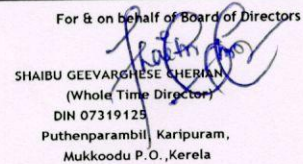 For & on behalf of Board of Directors
SHAIBU GEEVARGHESE CHERIAN
(Whole Time Director)
DIN 07319125
Puthenparambil, Karipuram,
Mukkoodu P.O.,Kerela